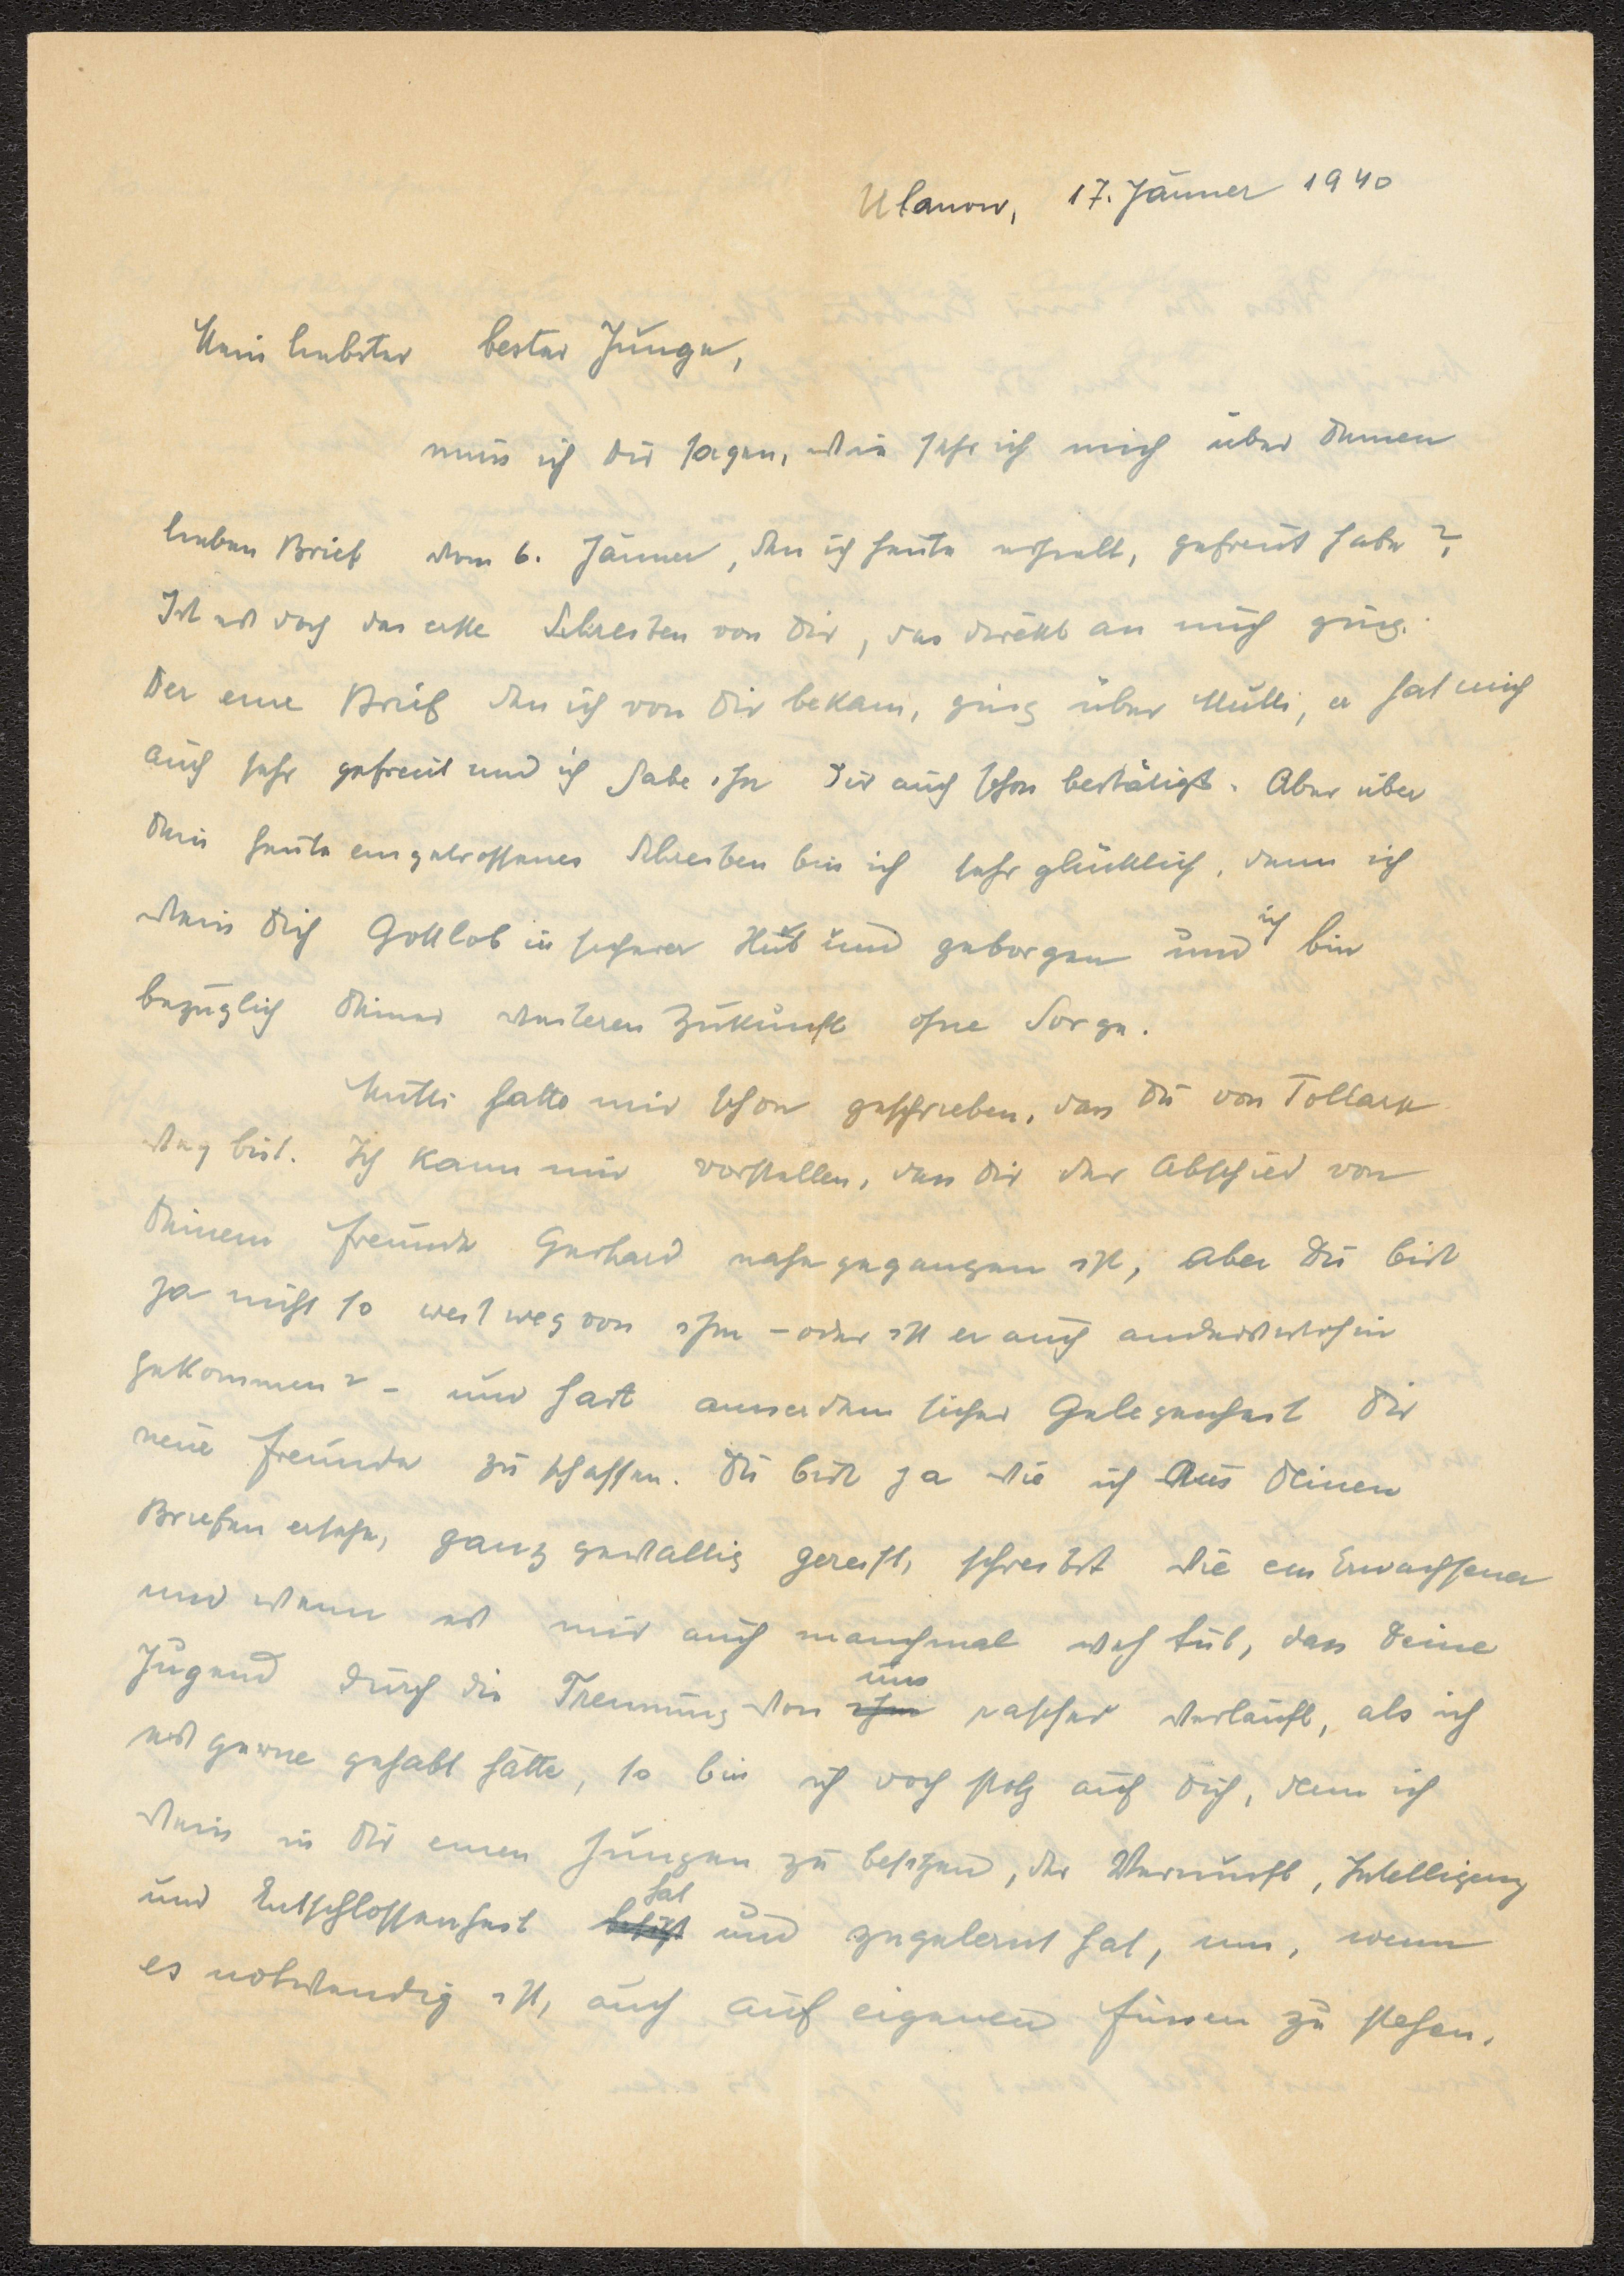 Ulanow, 17. Jänner 1940
Mein liebster bester Junge,
muss ich Dir sagen, wie sehr ich mich über Deinen
lieben Brief vom 6. Jänner, den ich heute erhielt, gefreut habe?
Ist es doch das erste Schreiben von Dir, das direkt an mich ging.
Der eine Brief den ich von Dir bekam, ging über Mutti, er hat mich
auch sehr gefreut und ich habe ihn Dir auch schon bestätigt. Aber über
Dein heute eingetroffenes Schreiben bin ich sehr glücklich, denn ich
weis Dich Gottlob in sicherer Hut und geborgen und ich bin
bezüglich Deiner weiteren Zukunft ohne Sorge.
Mutti hatte mir schon geschrieben, dass Du von Tollarp
weg bist. Ich kann mir vorstellen, dass Dir der Abschied von
Deinem Freunde Gerhard nahe gegangen ist, aber Du bist
ja nicht so weit weg von ihm - oder ist er auch anderswohin
gekommen? - und hast ausserdem sicher Gelegenheit Dir
neue Freunde zu schaffen. Du bist ja wie ich aus Deinen
Briefen ersehe, ganz gewaltig gereift, schreibst wie ein Erwachsener
und wenn es mir auch manchmal weh tut, dass Deine
Jugend durch die Trennung von ihm uns rascher verläuft, als ich
es gerne gehabt hätte, so bin ich doch stolz auf Dich, denn ich
weis in Dir einen Jungen zu besitzen, der Vernunft, Intelligenz
und Entschlossenheit besitzt hat und zugelernt hat, um, wenn
es notwendig ist, auch auf eigenen Füssen zu stehen.